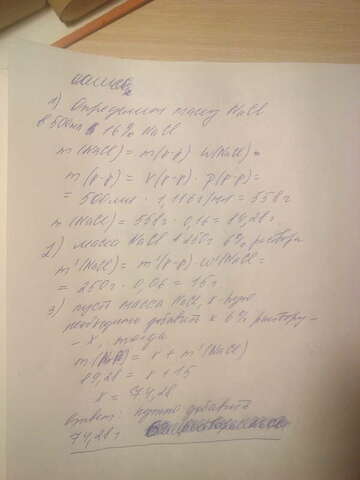 1) Определим массу NaCl
в 500мл 16% NaCl
m(NaCl) = m(р-р) · w(NaCl) =
m(р-р) = V(р-р) · ρ(р-р) =
= 500мл · 1,116г/мл = 558г
m(NaCl) = 558г · 0,16 = 89,28г
2) масса NaCl в 250г 6% раствора
m'(NaCl) = m'(р-р) · w'(NaCl) =
= 250г · 0,06 = 15г
3) пусть масса NaCl, х-рую
необходимо добавить к 6% раствору -
- х, тогда
m(NaCl) = x + m'(NaCl)
89,28 = x + 15
x = 74,28
Ответ: нужно добавить
74,28г